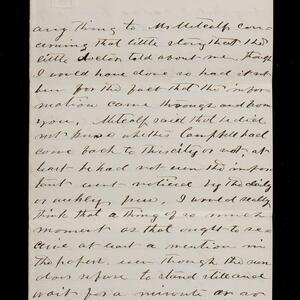 any thing to Mr Metcalf con-
cerning that little story that the
little doctor told about me, though
I would have done so had it not
been for the fact that the infor-
mation came through and from
you. Metcalf said that he did
not know whether Campbell had
come back to this city or not; at
least he had not seen the impor-
tant event noticed by the daily
or weekly press. I would really
think that a thing of so much
moment as that ought to re-
ceive at least a mention in
the papers even though the sun
does refuse to stand still and
wait for a minute or so